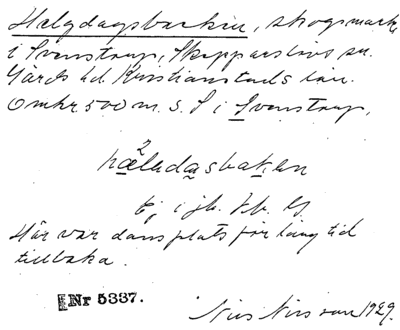 Helgdagsbacken, skogsmark
i Svenstorp, Skepparslövs sn.
Gärds hd. Kristianstads län.
Omkr 500 m. s. S i Svenstorp.
hæladasbaken
Ej i jb. Hb. Gk
Här var dansplats för lång tid
tillbaka.
Nr 5337.
Nils Nilsson 1929.